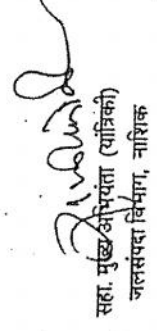 सहा. मुख्य अभियंता (यांत्रिकी)
जलसंपदा विभाग, नाशिक